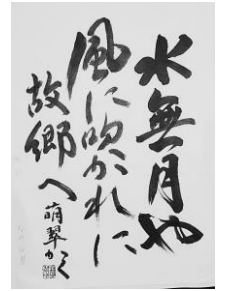 水無月や
風に吹かれに
故郷へ
萠翠かく